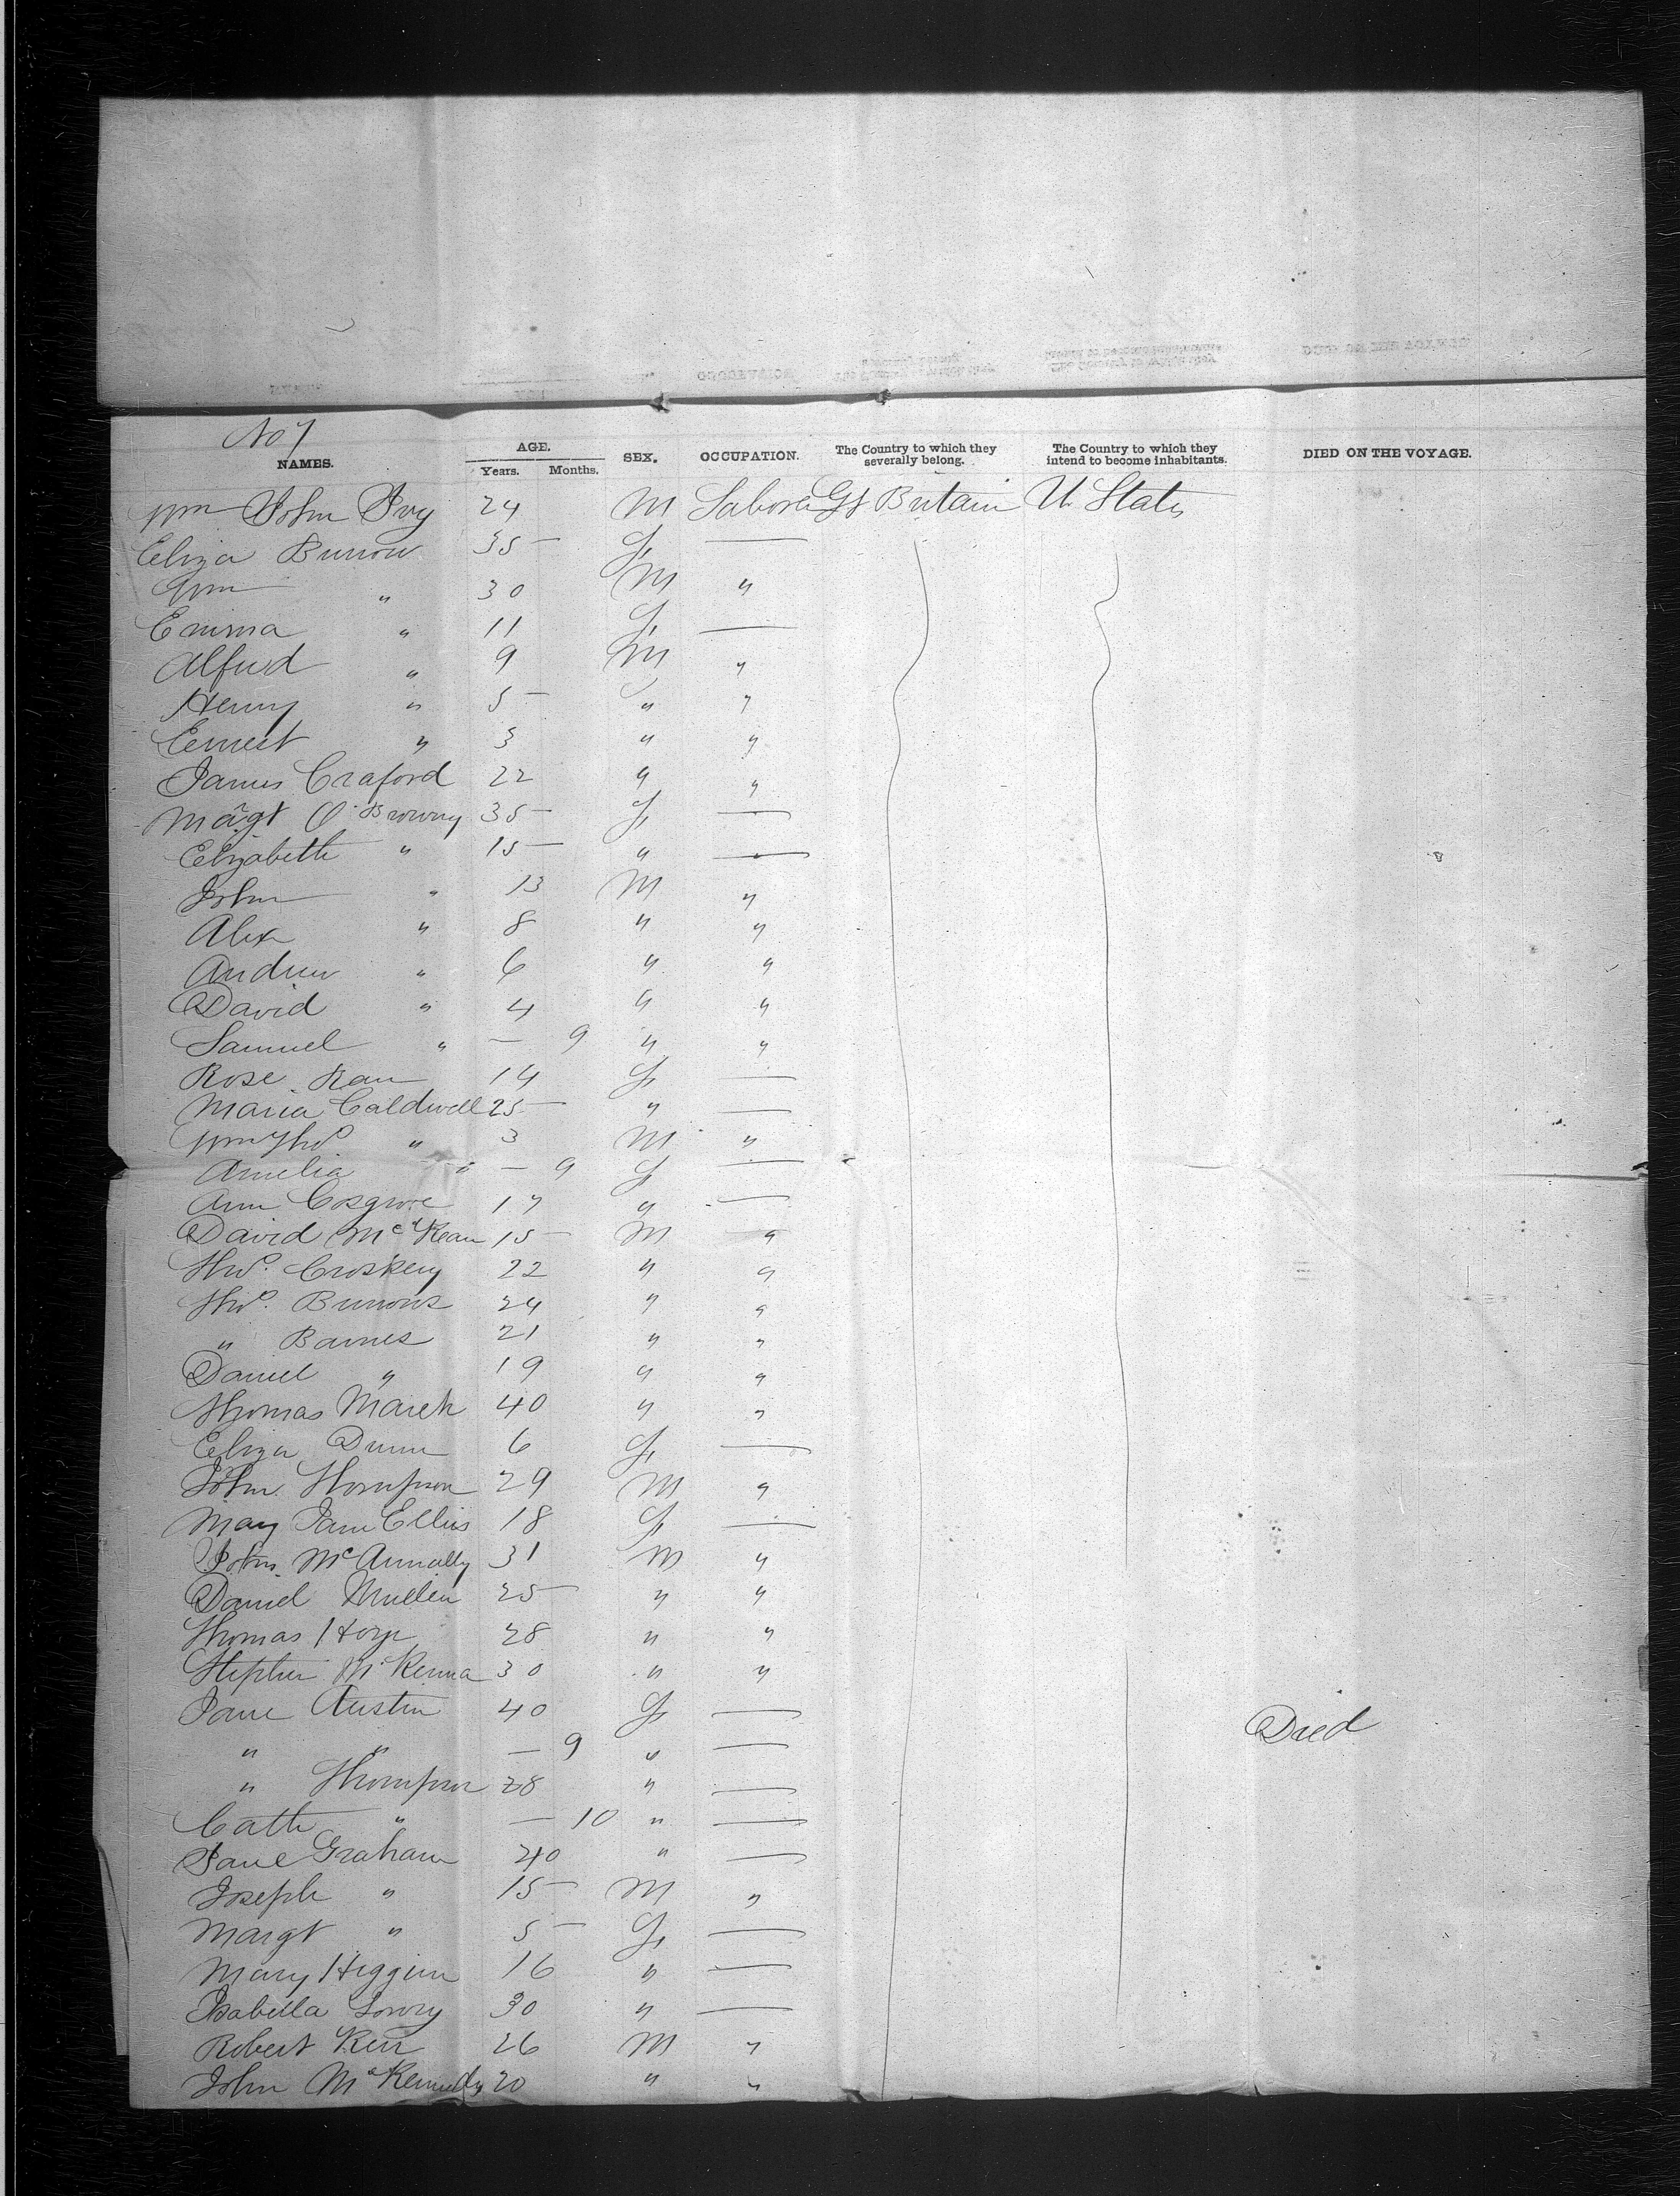 No 7
NAMES. AGE. Years. Months. SEX. OCCUPATION. The Country to which they severally belong. The Country to which they intend to become inhabitants. DIED ON THE VOYAGE.
Wm John Ivy 24 M Laborer Gt Britain U. States
Eliza Burrow 35 F —
Wm " 30 M "
Emma " 11 F —
Alfred " 9 M "
Henry " 5 " "
Ernest " 3 " "
James Craford 22 " "
Margt O'Browny 35 F —
Elizabeth " 15 " —
John " 13 M "
Alex " 8 " "
Andrew " 6 " "
David " 4 " "
Samuel " — 9 " "
Rose Kan 14 F —
Maria Caldwell 25 " —
Wm Thos " 3 M "
Amelia " — 9 F —
Ann Cosgrove 17 " —
David McKean 15 M "
Thos. Croskery 22 " "
Thos. Burrows 24 " "
" Barnes 21 " "
Daniel " 19 " "
Thomas March 40 " "
Eliza Dunn 6 F —
John Thompson 29 M "
Mary Jane Ellis 18 F —
John McAnnally 31 M "
Daniel Mullen 25 " "
Thomas 28 " "
Stephen McKenna 30 " "
Jane Austin 40 F —
" " — 9 " — Died
" Thompson 28 " —
Cath " — 10 " —
Jane Graham 40 " —
Joseph " 15 M "
Margt " 5 F —
Mary Higgins 16 " —
Isabella Lowry 30 " —
Robert Kerr 26 M "
John McKennedy 20 " "